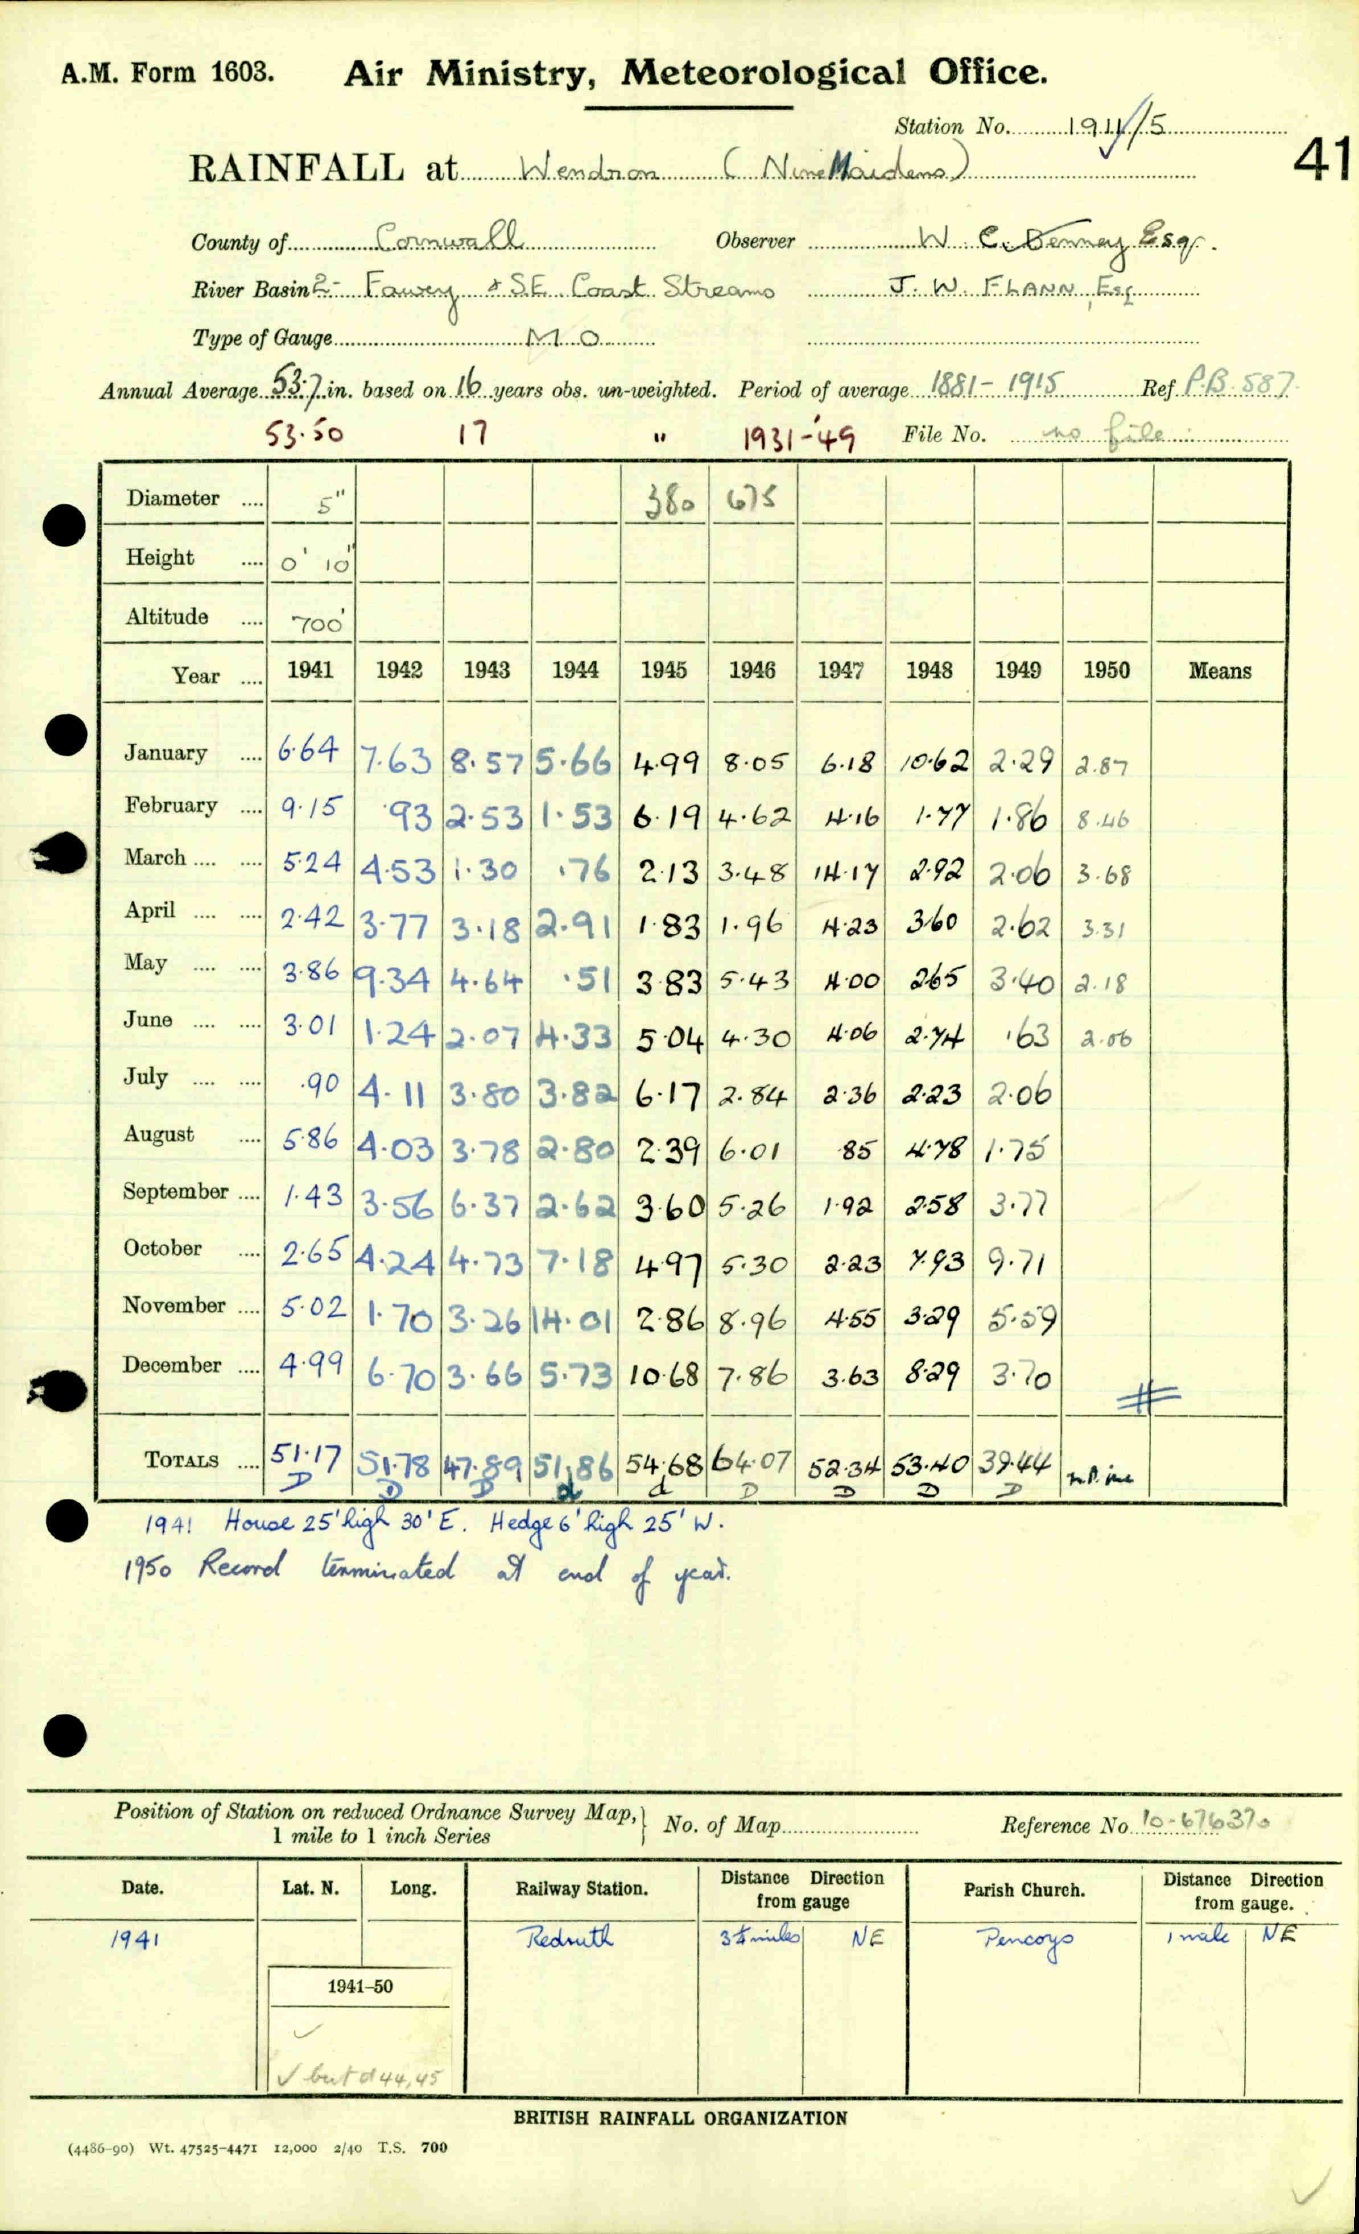 A.M. Form 1603. Air Ministry, Meteorological Office.
Station No. 1911/5
41
RAINFALL at Wendron (Nine Maidens)
County of Cornwall Observer W. C. Denney Esqr.
River Basin 2- Fowey & S.E. Coast Streams J. W. FLANN, Esq
Type of Gauge M O
Annual Average 53.7 in. based on 16 years obs. un-weighted. Period of average 1881-1915 Ref P.B. 587.
53.50 17 " 1931-'49 File No. no file
Diameter .... 5" 380 675
Height .... 0' 10"
Altitude .... 700'
Year .... 1941 1942 1943 1944 1945 1946 1947 1948 1949 1950 Means
January .... 6.64 7.63 8.57 5.66 4.99 8.05 6.18 10.62 2.29 2.87
February .... 9.15 .93 2.53 1.53 6.19 4.62 4.16 1.77 1.86 8.46
March .... .... 5.24 4.53 1.30 .76 2.13 3.48 14.17 2.92 2.06 3.68
April .... .... 2.42 3.77 3.18 2.91 1.83 1.96 4.23 3.60 2.62 3.31
May .... .... 3.86 9.34 4.64 .51 3.83 5.43 4.00 2.65 3.40 2.18
June .... .... 3.01 1.24 2.07 4.33 5.04 4.30 4.06 2.74 .63 2.06
July .... .... .90 4.11 3.80 3.82 6.17 2.84 2.36 2.23 2.06
August .... 5.86 4.03 3.78 2.80 2.39 6.01 .85 4.78 1.75
September .... 1.43 3.56 6.37 2.62 3.60 5.26 1.92 2.58 3.77
October .... 2.65 4.24 4.73 7.18 4.97 5.30 2.23 7.93 9.71
November .... 5.02 1.70 3.26 14.01 2.86 8.96 4.55 3.29 5.59
December .... 4.99 6.70 3.66 5.73 10.68 7.86 3.63 8.29 3.70
TOTALS .... 51.17 51.78 47.89 51.86 54.68 64.07 52.34 53.40 39.44
D D D d d D D D D
1941 House 25' high 30' E. Hedge 6' high 25' W.
1950 Record terminated at end of year.
Position of Station on reduced Ordnance Survey Map, 1 mile to 1 inch Series } No. of Map Reference No. 10-676370
Date. Lat. N. Long. Railway Station. Distance Direction from gauge Parish Church. Distance Direction from gauge.
1941 Redruth 3¼ miles NE Pencoys 1 mile NE
1941-50
✓ but d 44, 45
BRITISH RAINFALL ORGANIZATION
(4486-90) Wt. 47525-4471 12,000 2/40 T.S. 700